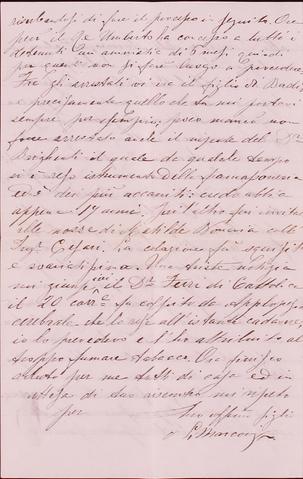 di fare il processo in seguito. Ora
però il Re Umberto ha concesso a tutti i
detenuti un amnistia di 6 mesi quindi
per questi non si farà luogo a procedere.
Fra gli arrestati vi era il figlio di
e precisamente quello che da noi portava
sempre poco mancò non
fosse arrestato anche il nipote del Dr
Brighenti il quale da qualche tempo
si è reso della framassoneria
ed è dei più accaniti: credo abbia
appena 17 anni. fui invitato
alle nozze di Matilde coll'
Ing. Cesari. La colazione fu squisita
e svariatissima. Una triste notizia
mi giunse, il Dr. Ferri di Cattolica
il 20 corre fu colpito da apoplessia
cerebrale che lo rese all'istante cadavere
io lo prevedevo e l'ho attribuito al
troppo fumare tabacco. Ora
saluto per me tutti di casa ed in
attesa di suo riscontro mi ripeto
per
Suo figlio